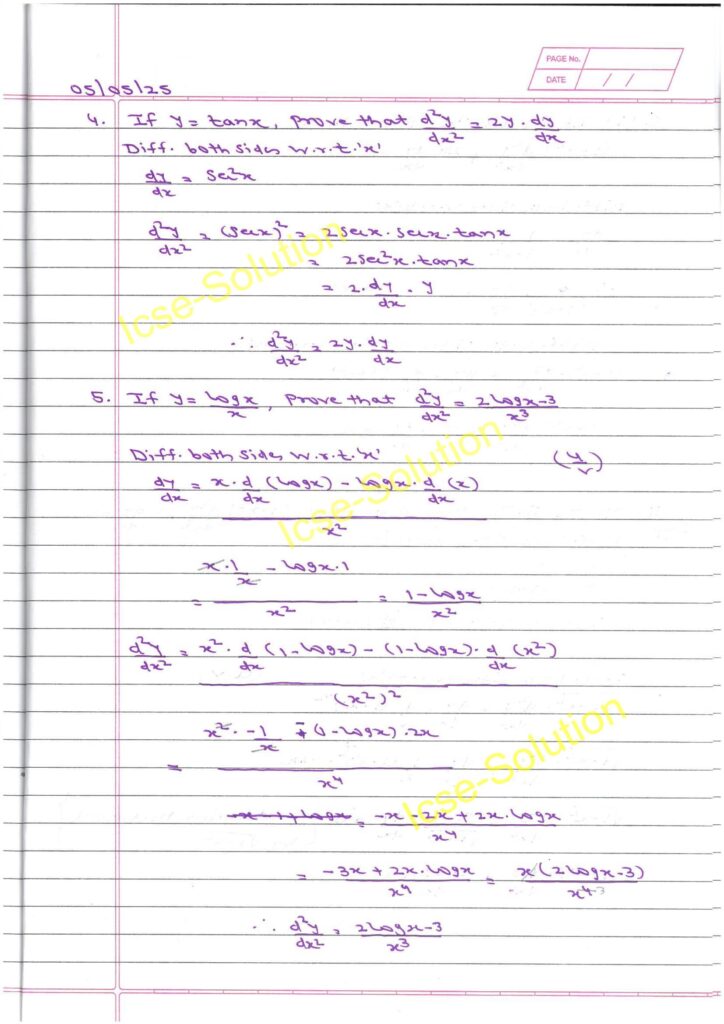 PAGE No.
DATE / /
05/05/25
4. If y = tanx, prove that d²y/dx² = 2y · dy/dx
Diff. both sides w.r.t. 'x'
dy/dx = sec²x
d²y/dx² = (secx)² = 2secx · secx · tanx
= 2sec²x · tanx
= 2 · dy/dx · y
∴ d²y/dx² = 2y · dy/dx
5. If y = logx/x, prove that d²y/dx² = 2logx-3/x³
Diff. both sides w.r.t. 'x' (u/v)
dy/dx = x · d/dx (logx) - logx · d/dx (x)
x²
x · 1/x - logx · 1
= x² = 1-logx/x²
d²y/dx² = x² · d/dx (1-logx) - (1-logx) · d/dx (x²)
(x²)²
x² · -1/x - (1-logx) · 2x
= x⁴
-x-1+logx = -x-2x+2x·logx/x⁴
= -3x+2x·logx/x⁴ = x(2logx-3)/x⁴ 3
∴ d²y/dx² = 2logx-3/x³
Icse-Solution
Icse-Solution
Icse-Solution